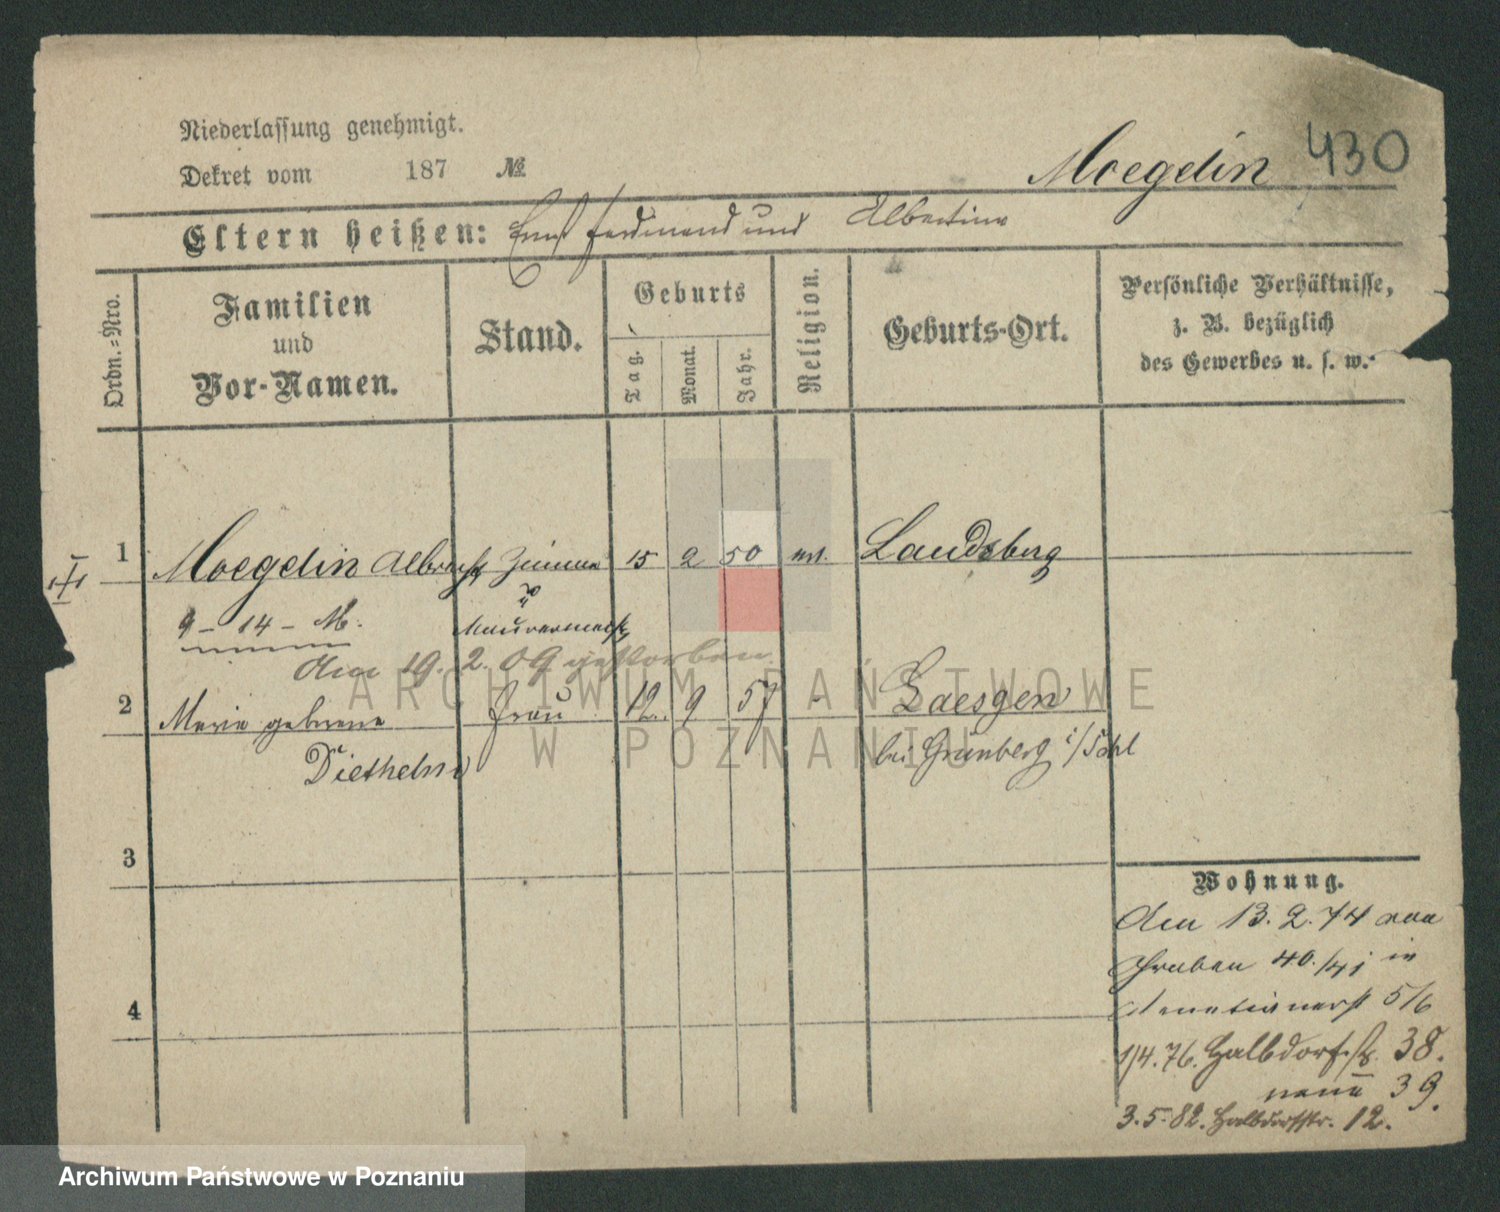 Niederlassung genehmigt.
Dekret vom 187 №
Moegelin 430
Eltern heißen: Ernst Ferdinand und Albertine
Ordn.-Nro.
Familien
und
Vor-Namen.
Stand.
Geburts
Tag.
Monat.
Jahr.
Religion.
Geburts-Ort.
Persönliche Verhältnisse,
z. B. bezüglich
des Gewerbes u. s. w.
1 Moegelin Albrecht Zimmer 15 2 50 ev. Landsberg
u
9 - 14 - M. Maurermeist
Am 19. 2. 09 gestorben
2 Marie geborene Frau 12. 9 57 - Laesgen
Diethelm bei Grünberg i/Schl
3
Wohnung.
Am 13. 2. 74 von
Graben 40./41 in
5/6
4
1/4. 76. Halbdorfstr. 38.
neue 39.
3. 5. 82. Halbdorfstr. 12.
ARCHIWUM PAŃSTWOWE
W POZNANIU
Archiwum Państwowe w Poznaniu